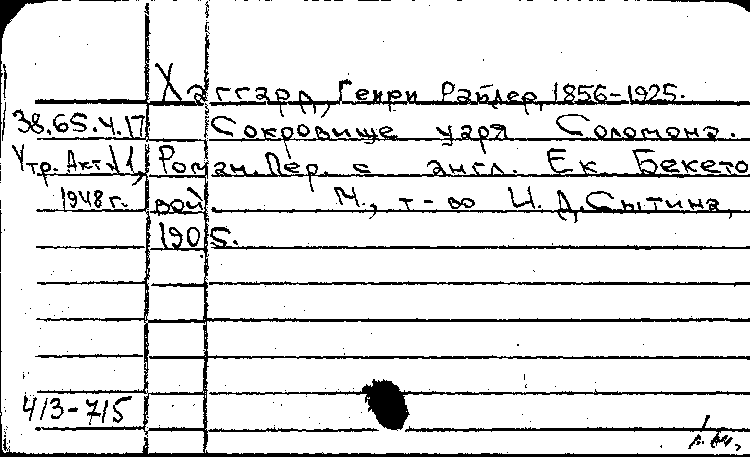 Хаггард, Генри Райдер, 1856-1925.
38.65.4.17 Сокровище царя Соломона.
Утр. Акт №1, Роман. Пер. с англ. Ек. Бекето
1948 г. вой. М., т-во И. Д. Сытина,
1905.
413-715